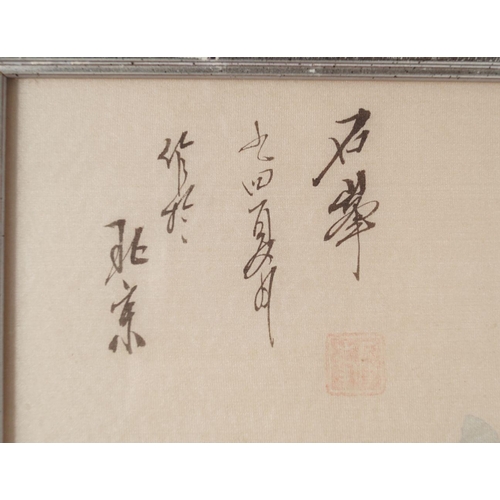 石峰
九四夏月
作於
北京